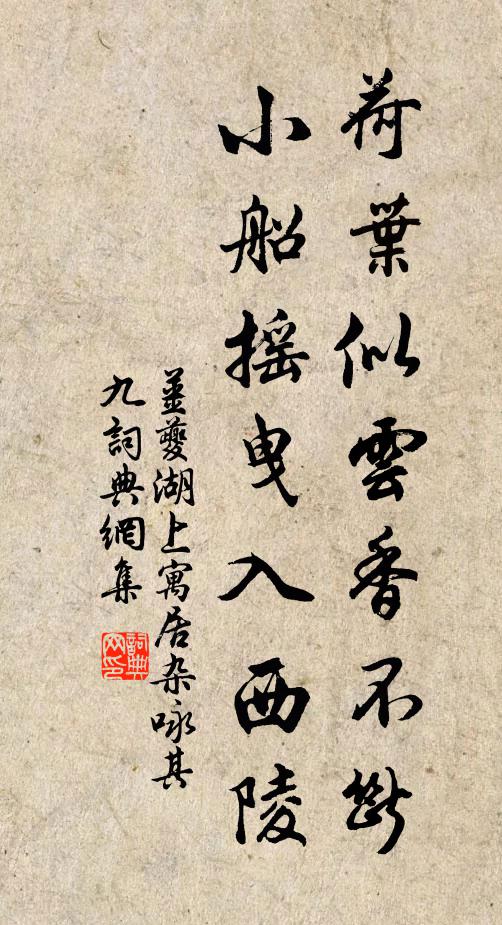 荷葉似雲香不斷
小船摇曳入西陵
姜夔湖上寓居杂咏其
九詞典網集
詞典
网印